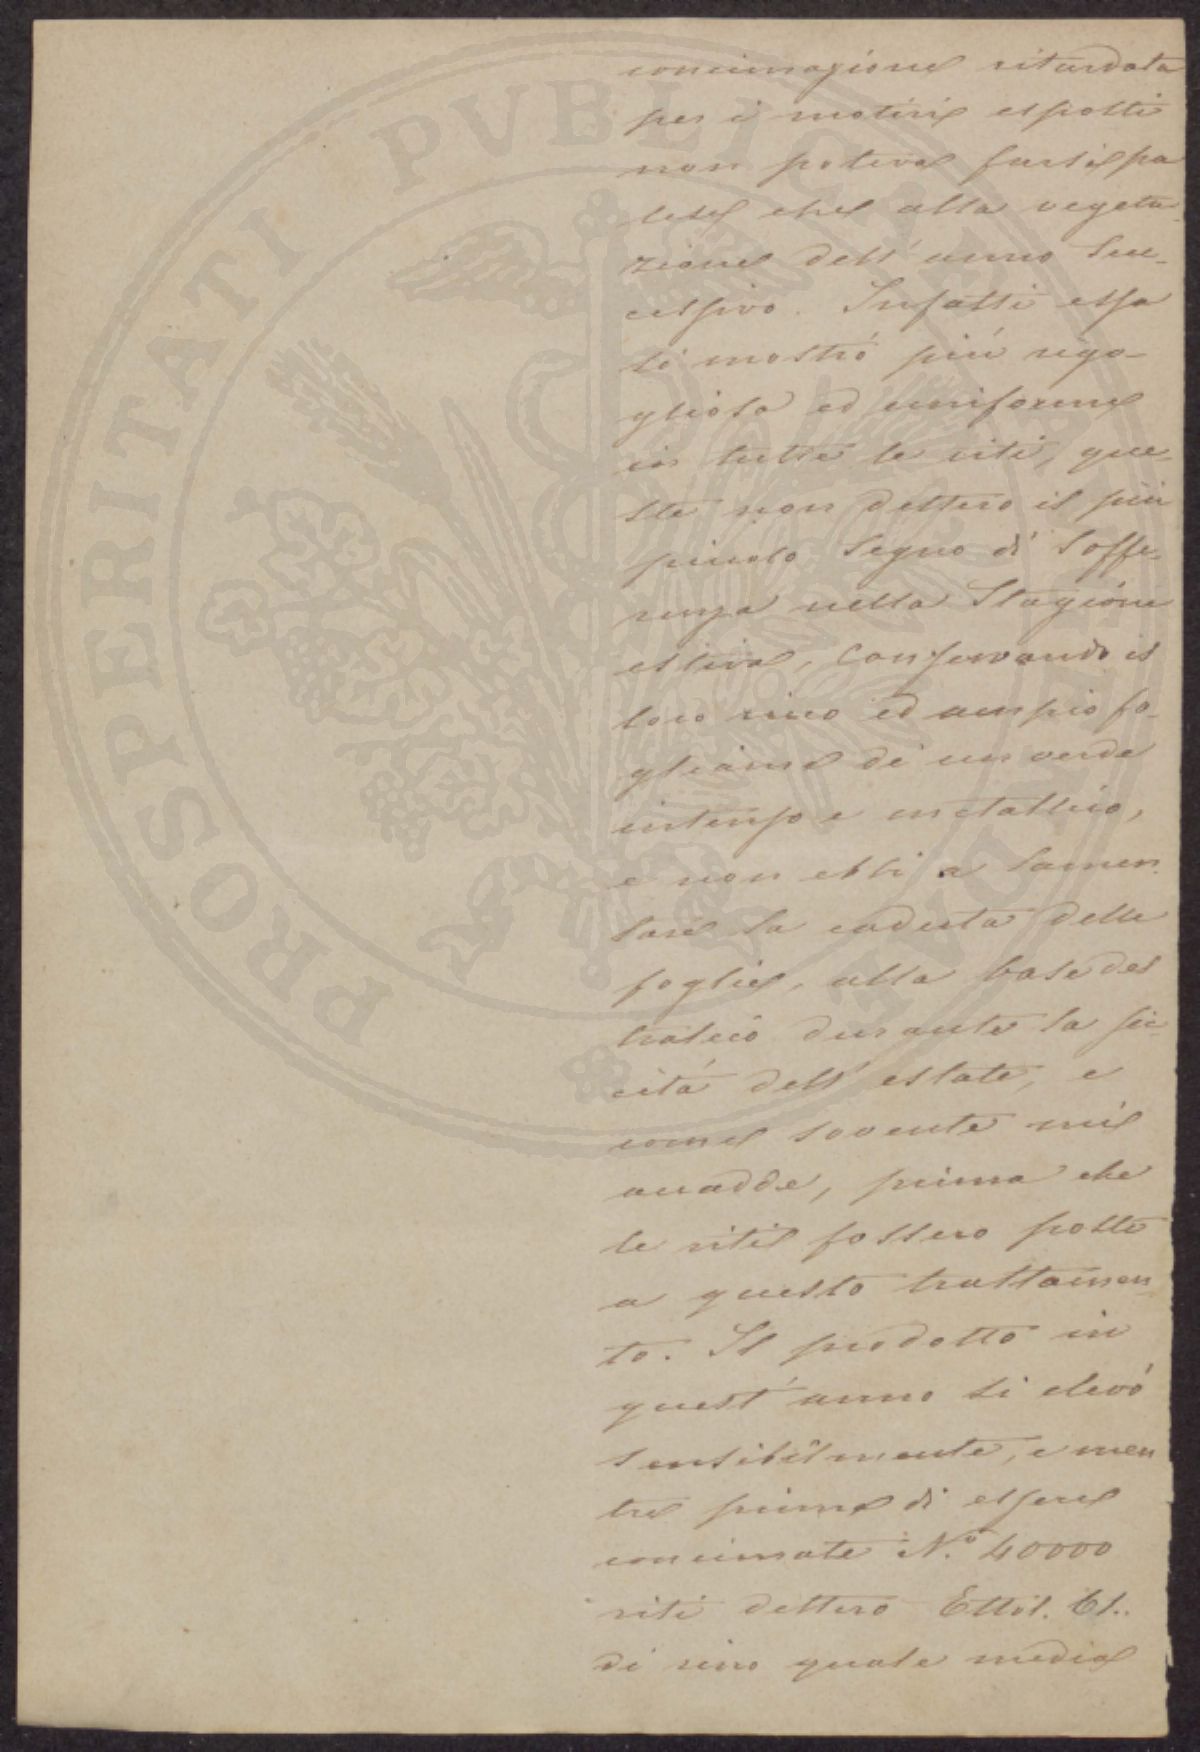 PROSPERITATI PVBLICAE AVGENDAE
concimazione ritardata
per i motivi esposti
non poteva farsi pa
lese che alla vegeta-
zione dell'anno suc-
cessivo. Infatti essa
si mostró piú rigo-
gliosa ed uniforme
in tutte le viti, que-
ste non dettero il piú
piccolo segno di soffe-
renza nella Stagione
estiva, Conservando il
loro vivo ed ampio fo-
gliame di un verde
intenso e metallico,
e non ebbi a lamen
tare la caduta delle
foglie, alla base del
tralcio durante la sic-
cità dell'estate, e
come sovente mi
accadde, prima che
le viti fossero poste
a questo trattamen-
to. Il prodotto in
quest'anno si elevó
sensibilmente, e men
tre prima di essere
concimate N.º 40000
viti dettero Ettol. 61..
di vino quale media